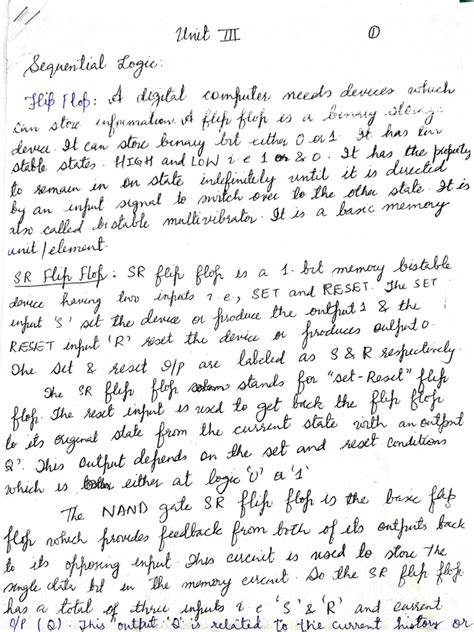 Unit III
1
Sequential Logic:
Flip Flop: A digital computer needs devices which
can store information. A flip flop is a binary storage
device. It can store binary bit either 0 or 1. It has two
stable states. HIGH and LOW i e 1 or & 0. It has the property
to remain in on state indefinitely until it is directed
by an input signal to switch over to the other state. It is
also called bistable multivibrator. It is a basic memory
unit/element.
SR Flip Flop: SR flip flop is a 1-bit memory bistable
device having two inputs i.e., SET and RESET. The SET
input 'S' set the device or produce the output 1 & the
RESET input 'R' reset the device or produces output 0.
The set & reset I/P are labeled as S & R respectively.
The SR flip flop stands for "set-Reset" flip
flop. The reset input is used to get back the flip flop
to its original state from the current state with an output
Q'. This output depends on the set and reset conditions
which is either at logic '0' or '1'
The NAND gate SR flip flop is the basic flip
flop which provides feedback from both of its outputs back
to its opposing input. This circuit is used to store the
single data bit in the memory circuit. So the SR flip flop
has a total of three inputs i e 'S' & 'R' and current
O/P (Q). This output 'Q' is related to the current history or